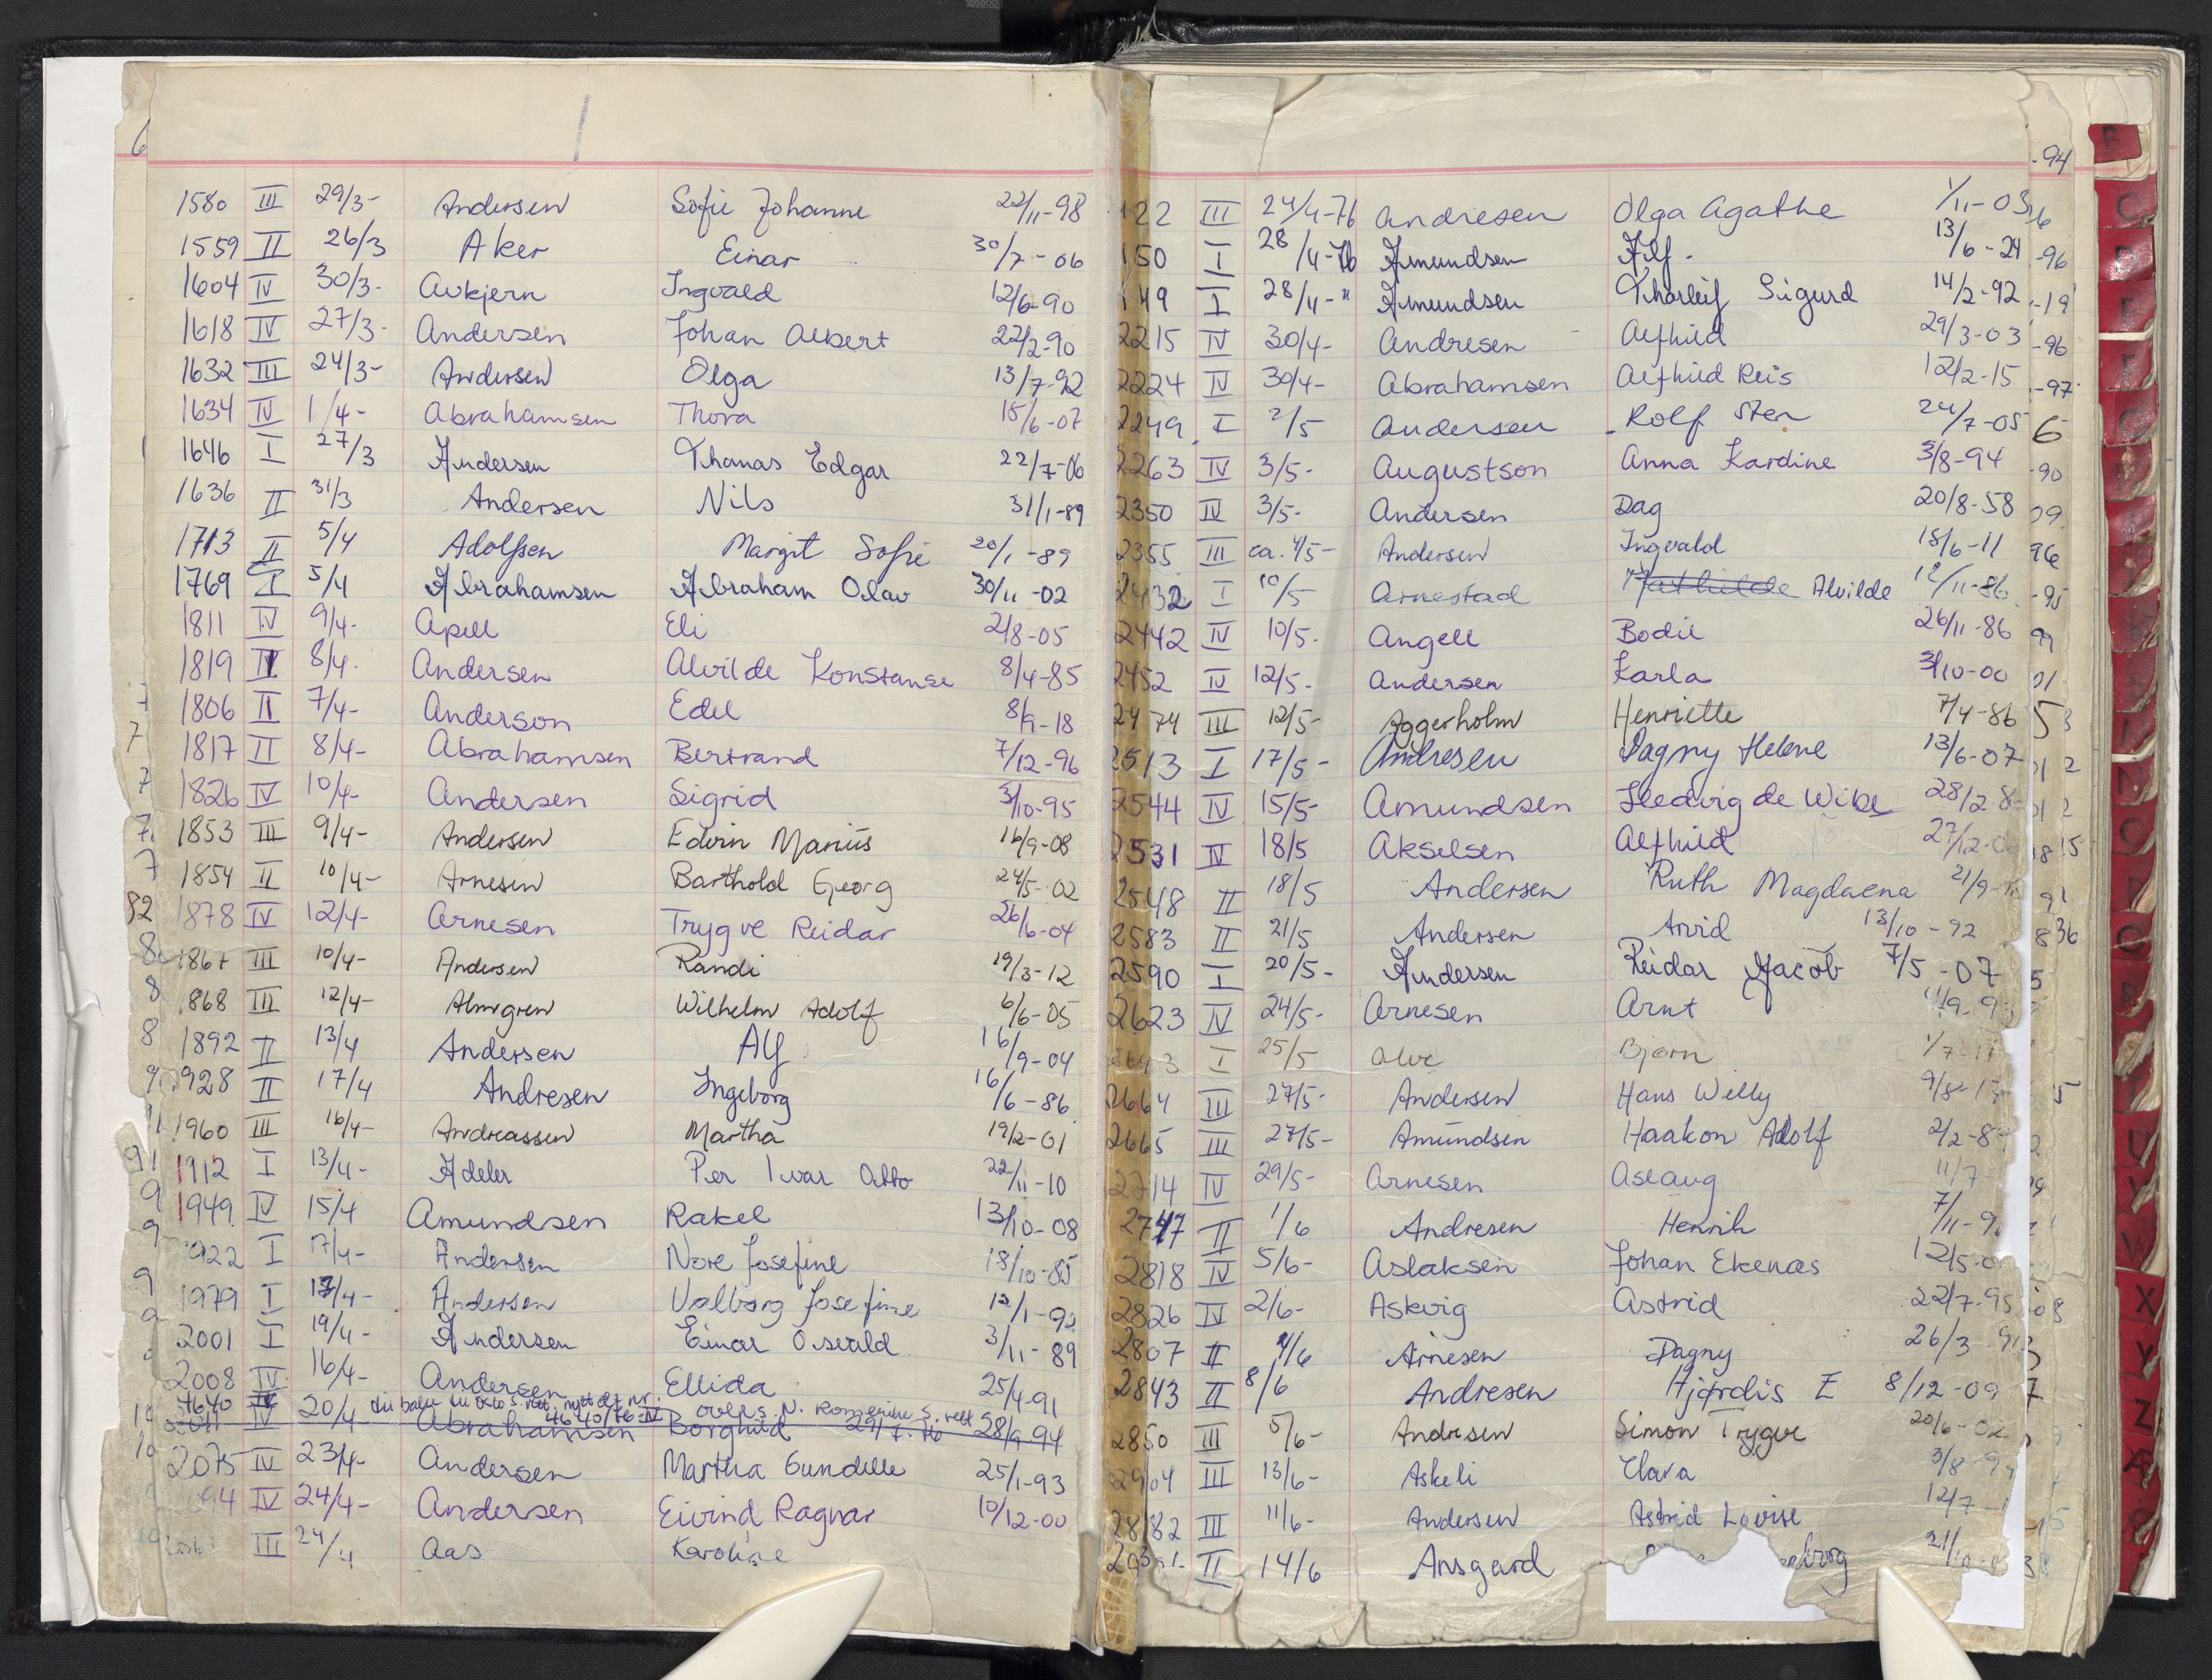 6
1580 III 29/3- Andersen Sofie Johanne 22/11-98
1559 II 26/3 Aker Einar 30/7-06
1604 IV 30/3- Avkjern Ingvald 12/6-90
1618 IV 27/3- Andersen Johan Albert 22/2-90
1632 III 24/3- Andersen Olga 13/7-92
1634 IV 1/4- Abrahamsen Thora 15/6-07
1646 I 27/3 Andersen Thomas Edgar 22/7-06
1636 II 31/3 Andersen Nils 31/1-89
1713 II 5/4 Adolfsen Margit Sofie 20/1-89
1769 I 5/4 Abrahamsen Abraham Olav 30/11-02
1811 IV 9/4- Apell Eli 2/8-05
1819 IV 8/4. Andersen Alvilde Konstanse 8/4-85
1806 II 7/4- Anderson Edel 8/9-18
1817 II 8/4- Abrahamsen Bertrand 7/12-96
1826 IV 10/4- Andersen Sigrid 3/10-95
1853 III 9/4- Andersen Edvin Marius 16/9-08
1854 II 10/4- Arnesen Barthold Georg 24/5-02
1878 IV 12/4- Arnesen Trygve Reidar 26/6-04
1867 III 10/4- Andersen Randi 19/3-12
868 III 12/4- Almgren Wilhelm Adolf 6/6-05
1892 II 13/4 Andersen Alf 16/9-04
928 II 17/4 Andresen Ingeborg 16/6-86
1960 III 16/4- Andreassen Martha 19/2-01
1912 I 13/4- Adeler Per Ivar Otto 22/11-10
1949 IV 15/4 Amundsen Rakel 13/10-08
922 I 17/4- Andersen Nore Josefine 18/10-85
1979 I 17/4- Andersen Valborg Josefine 12/1-92
2001 I 19/4- Andersen Einar Osvald 3/11-89
2008 IV 16/4- Andersen Ellida 25/4-91
4640 IV 20/4 Abrahamsen Borghild 28/9-94
4640/76-IV overs. N. Romerike s. rett 29/7-76
2075 IV 23/4- Andersen Martha Gundelle 25/1-93
94 IV 24/4- Andersen Eivind Ragnar 10/12-00
III 24/4 Aas Karoline
-94
122 III 24/4-76 Andresen Olga Agathe 1/11-03
150 I 28/4-76 Amundsen Alf. 13/6-24
149 I 28/4-" Amundsen Tharleif Sigurd 14/2-92
2215 IV 30/4- Andresen Alfhild 29/3-03
2224 IV 30/4- Abrahamsen Alfhild Reis 12/2-15
2249 I 2/5 Andersen Rolf Sten 24/7-05
2263 IV 3/5- Augustson Anna Kardine 3/8-94
2350 IV 3/5- Andersen Dag 20/8-58
2355 III ca. 4/5- Andersen Ingvald 18/6-11
2432 I 10/5 Arnestad Mathilde Alvilde 12/11-86
2442 IV 10/5- Angell Bodil 26/11-86
2452 IV 12/5- Andersen Karla 3/10-00
2474 III 12/5- Aggerholm Henriette 7/4-86
2513 I 17/5- Andresen Dagny Helene 13/6-07
2544 IV 15/5- Amundsen Hedvig de Wibe 28/2-8
2531 IV 18/5 Akselsen Alfhild 27/12-0
2548 II 18/5 Andersen Ruth Magdaena 21/9-
2583 II 21/5 Andersen Arvid 13/10-92
2590 I 20/5- Andersen Reidar Jacob 7/5-07
2623 IV 24/5- Arnesen Arnt
I 25/5 Alve Bjørn 1/7-
2664 III 27/5- Andersen Hans Willy 9/8-
2665 III 27/5- Amundsen Haakon Adolf 2/2-8
2714 IV 29/5- Arnesen Aslaug 11/7
2747 II 1/6 Andresen Henrik 7/11-9
2818 IV 5/6- Aslaksen Johan Ekenæs 12/5-0
2826 IV 2/6- Askvig Astrid 22/7-95
2807 II 4/6 Arnesen Dagny 26/3-9
2843 II 8/6 Andresen Hjørdis E 8/12-09
2850 III 5/6- Andresen Simon Trygve 20/6-02
2904 III 13/6- Askeli Clara 3/8-9
2882 III 11/6- Andersen Astrid Lovise 12/7-
II 14/6 Ansgard 21/10